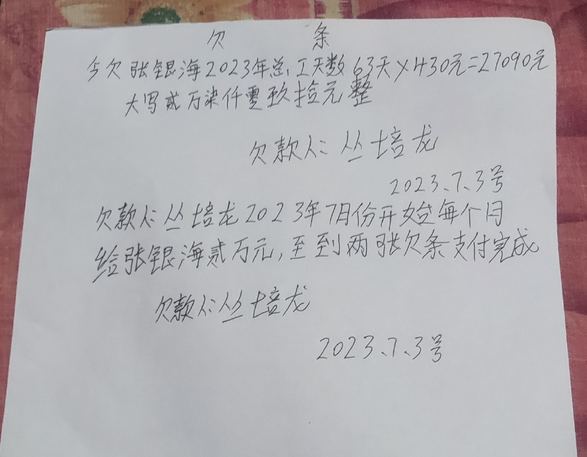 欠 条
今欠张银海2023年总工天数63天×430元=27090元
大写贰万柒仟零玖拾元整
欠款人:丛培龙
2023.7.3号
欠款人:丛培龙2023年7月份开始每个月
给张银海贰万元,至到两张欠条支付完成
欠款人:丛培龙
2023.7.3号